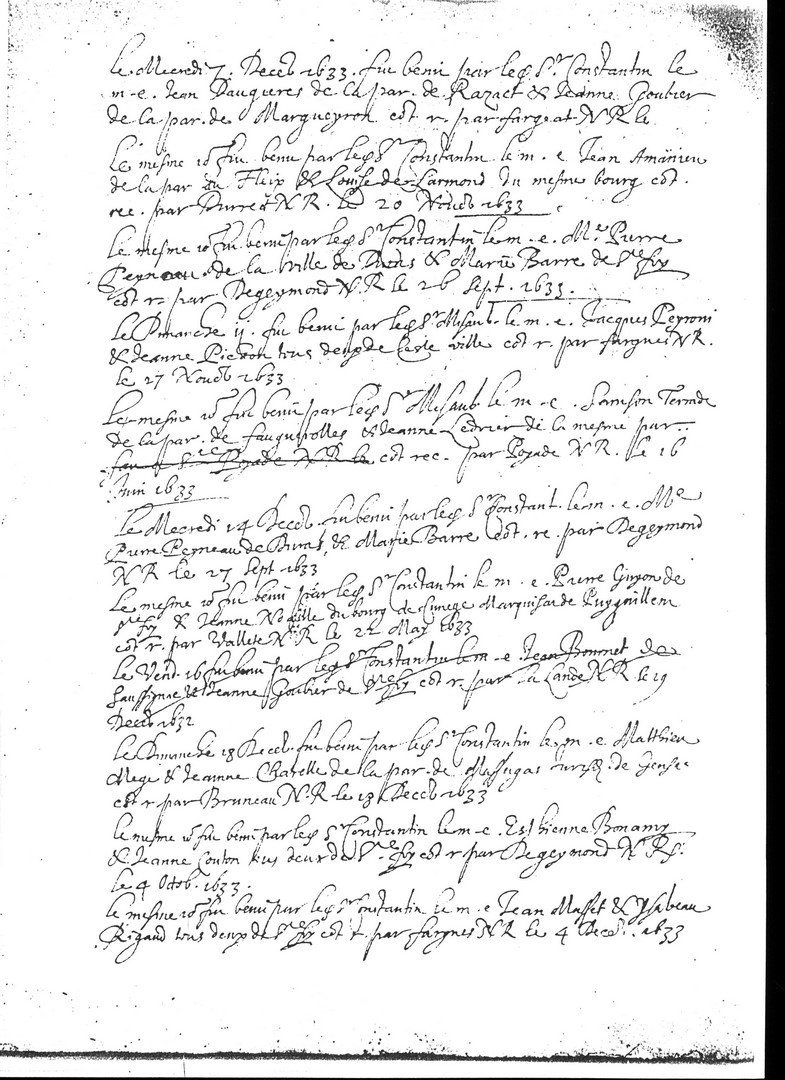 Le Mecredi 7. Deceb 1633. fut beni par led Sr Constantin le
m - e. Jean Dauqueres de la par. de Razact & Jeanne Goubier
de la par. de Margueyron cot. r. par fargeat N R le
Le mesme io fut beni par led Sr Constantin le m - e Jean Amanieu
de la par du Fleix & Louise de Larmond du mesme bourg cot.
rec. par Durre N R. Le 20 Noveb 1633
Le mesme io fut beni par led Sr Constantin le m - e. Me Pierre
de la ville de & Marie Barre de Ste foy
cot r. par Degeymond N R le 26 Sept. 1633.
Le Dimanche 11. fut beni par led Sr Misaub. le m. e. Jacques Peyroni
& Jeanne Pichon tous deux de ceste ville cot r. par fargues N R.
le 27 Noveb 1633
Le mesme io fut beni par led Sr Misaub le m - e. Samson
de la par. de fauguerolles & Jeanne Ledrier de la mesme par.
cot rec. par Poyade N R. le 16
Juin 1633
Le Mecredi 14 Deceb. fut beni par led Sr Constant. le m. e. Me
Pierre Peyneau de Duras, & Marie Barre cot. re. par Degeymond
N R le 27 Sept 1633
Le mesme io fut beni par led Sr Constantin le m - e. Pierre Guyon de
Ste foy & Jeanne du bourg de Cunege Marquisat de Puyguillem
cot r. par Vallete N R le 22 May 1633
Le Vend. 16 fut beni par led Sr Constantin le m - e Jean Bonnet de
Saussignac & Jeanne Goubier de Ste foy cot r. par La Lande N R. le 19
Deceb 1632
Le Dimanche 18 Deceb. fut beni par led Sr Constantin le m - e Matthieu
Mege & Jeanne Chatelle de la par. de Massugas de Gensac
cot r par Bruneau N. R le 13 Deceb 1633
le mesme io fut beni par led Sr Constantin le m - e. Esthienne Bonamy
& Jeanne Couton tous deux de Ste foy cot r. par Degeymond N R.
le 4 Octob. 1633.
le mesme io fut beni par led Sr Constantin le m - e Jean Masset & Ysabeau
Rigaud tous deux de Ste foy cot r. par fargues N R le 4 Deceb. 1633